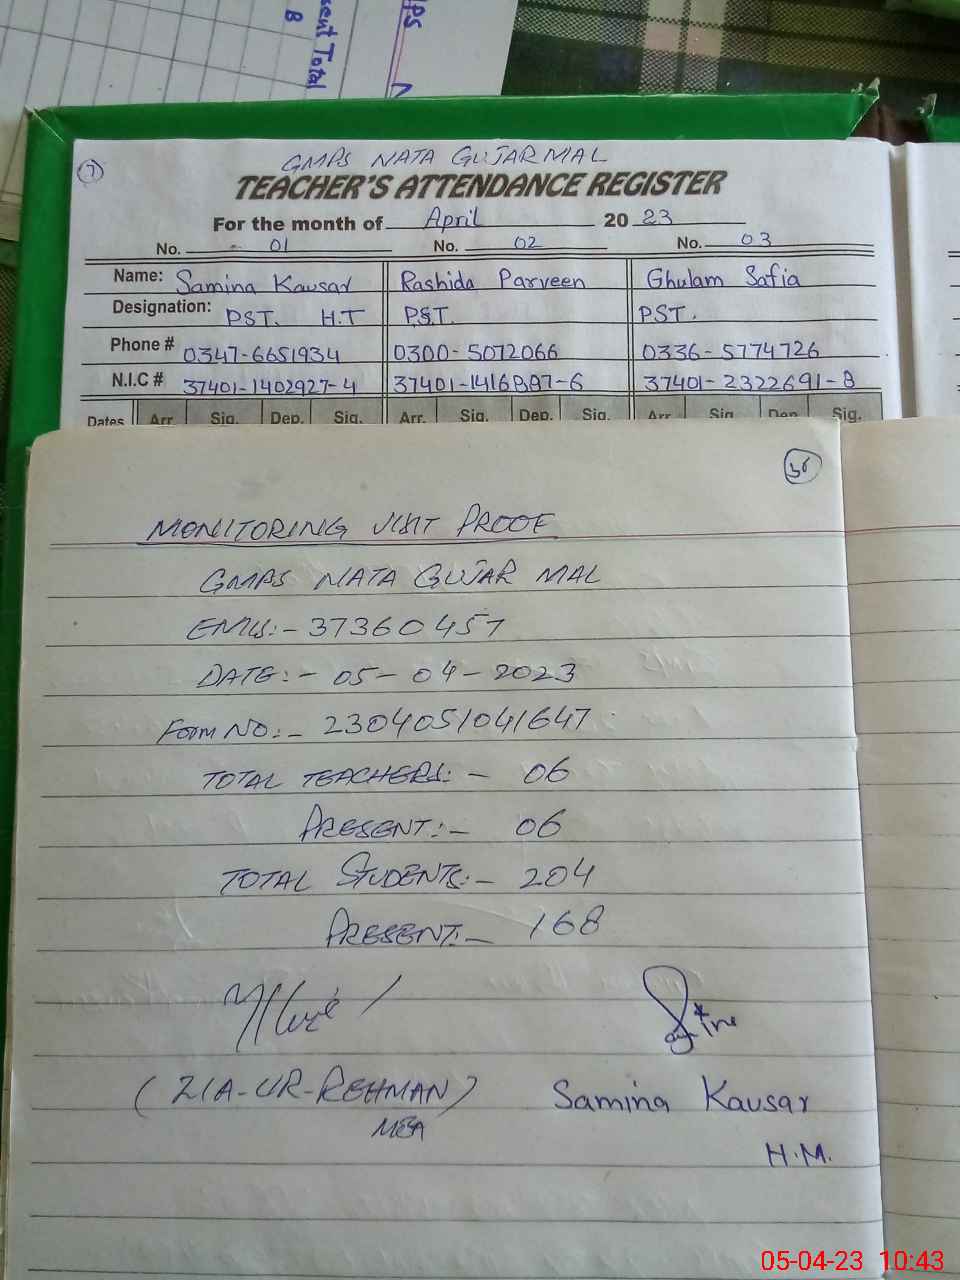 PS
sent Total
8
7
GMPS NATA GUJAR MAL
TEACHER'S ATTENDANCE REGISTER
For the month of April 2023
No. 01 No. 02 No. 03
Name: Samina Kausar Rashida Parveen Ghulam Safia
Designation: PST. H.T P.S.T. PST.
Phone # 0347-6651934 0300-5072066 0336-5774726
N.I.C # 37401-1402927-4 37401-1416887-6 37401-2322691-8
Dates Arr. Sig. Dep. Sig. Arr. Sig. Dep. Sig. Arr. Sig. Dep. Sig.
36
MONITORING VISIT PROOF
GMPS NATA GUJAR MAL
EMIS:- 37360457
DATE:- 05-04-2023
FORM NO:- 2304051041647
TOTAL TEACHERS:- 06
PRESENT:- 06
TOTAL STUDENTS:- 204
PRESENT:- 168
(ZIA-UR-REHMAN) Samina Kausar
MEA H.M.
05-04-23 10:43